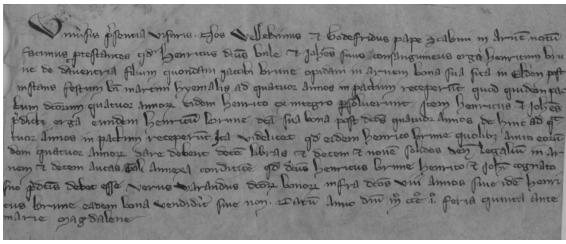 Universis presencia visuris nos Wessebrinus et Godefridus pape scabini in arnem notum
facimus protestantes quod henricus dictus bule et Johannes suus consanguineus erga henricum bru
ne de daventria filium quondam iacobi brune opidani in arnem bona sua sita in Elden post
instans festum beati martini hyemalis ad quatuor annos in pactum receperunt quod quidem pac
tum dictorum quatuor annorum eidem henrico ex integro persolverunt Item henricus et Johannes
predicti erga eundem henricum brune dicta sua bona post dictos quatuor annos de hinc ad qua
tuor annos in pactum receperunt Ita videlicet quod eidem henrico brune quolibet anno eorun
dem quatuor annorum dare debent decem libras et decem et novem solidos legalium in ar
nem et decem aucas tali annexa conditione quod dictus henricus brune henrico et Johanni cognato
suo predictis debet esse verus warandus dictorum bonorum infra dictos viii annos sive idem henri
cus brune eadem bona vendidit sive non Datum anno domini feria quinta ante
marie magdalene